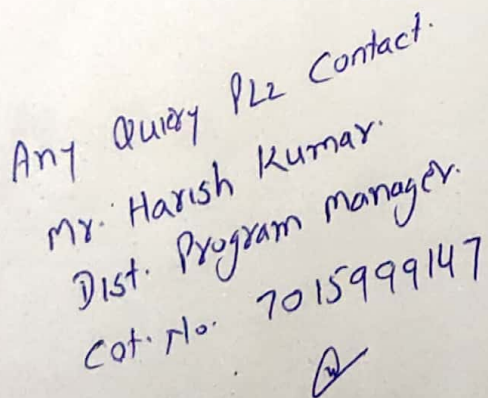 Any Quiery PLz Contact.
Mr. Harish Kumar.
Dist. Program Manager.
Cot. No. 7015999147